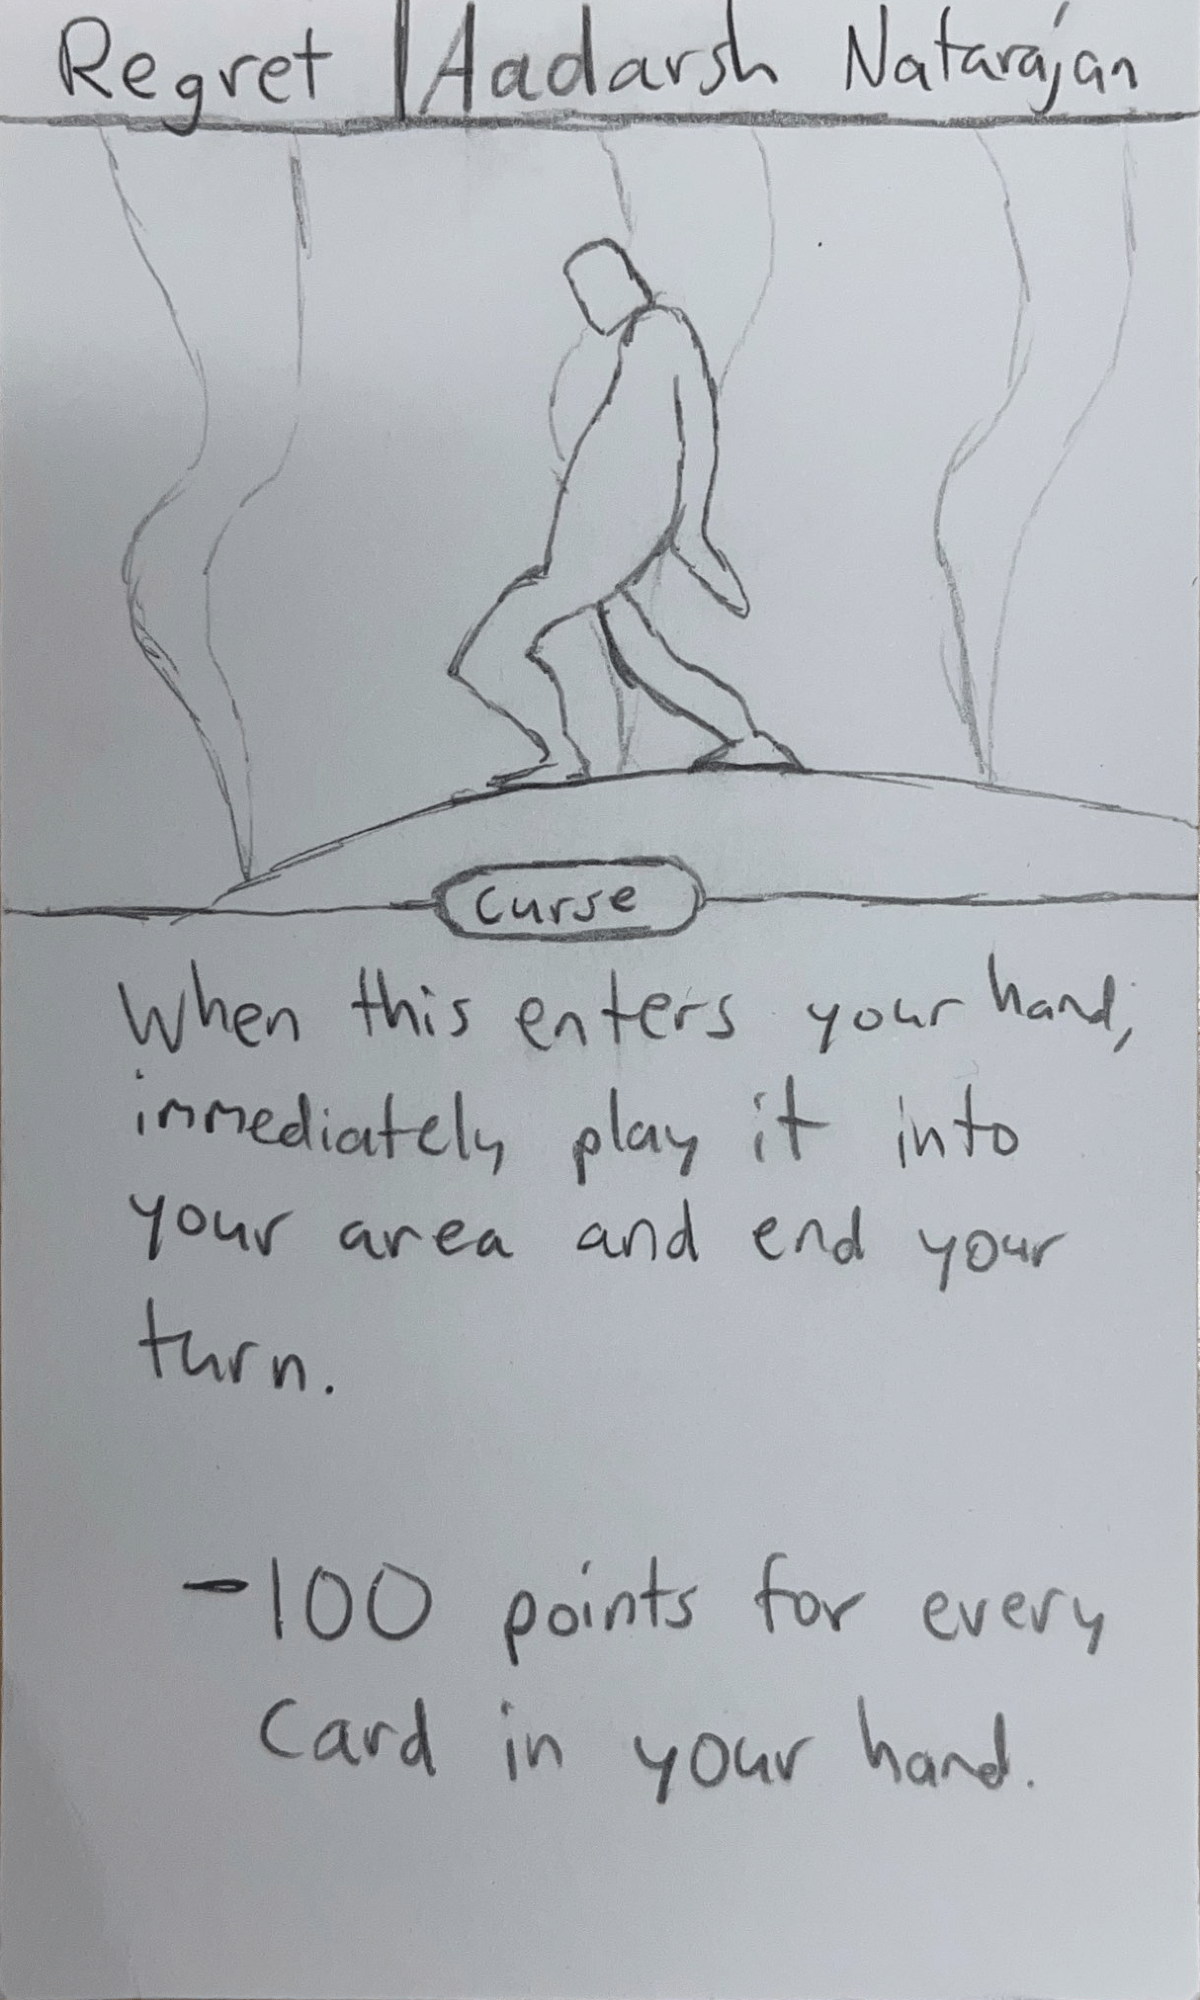 Regret | Aadarsh Natarajan
Curse
When this enters your hand,
immediately play it into
your area and end your
turn.
-100 points for every
Card in your hand.